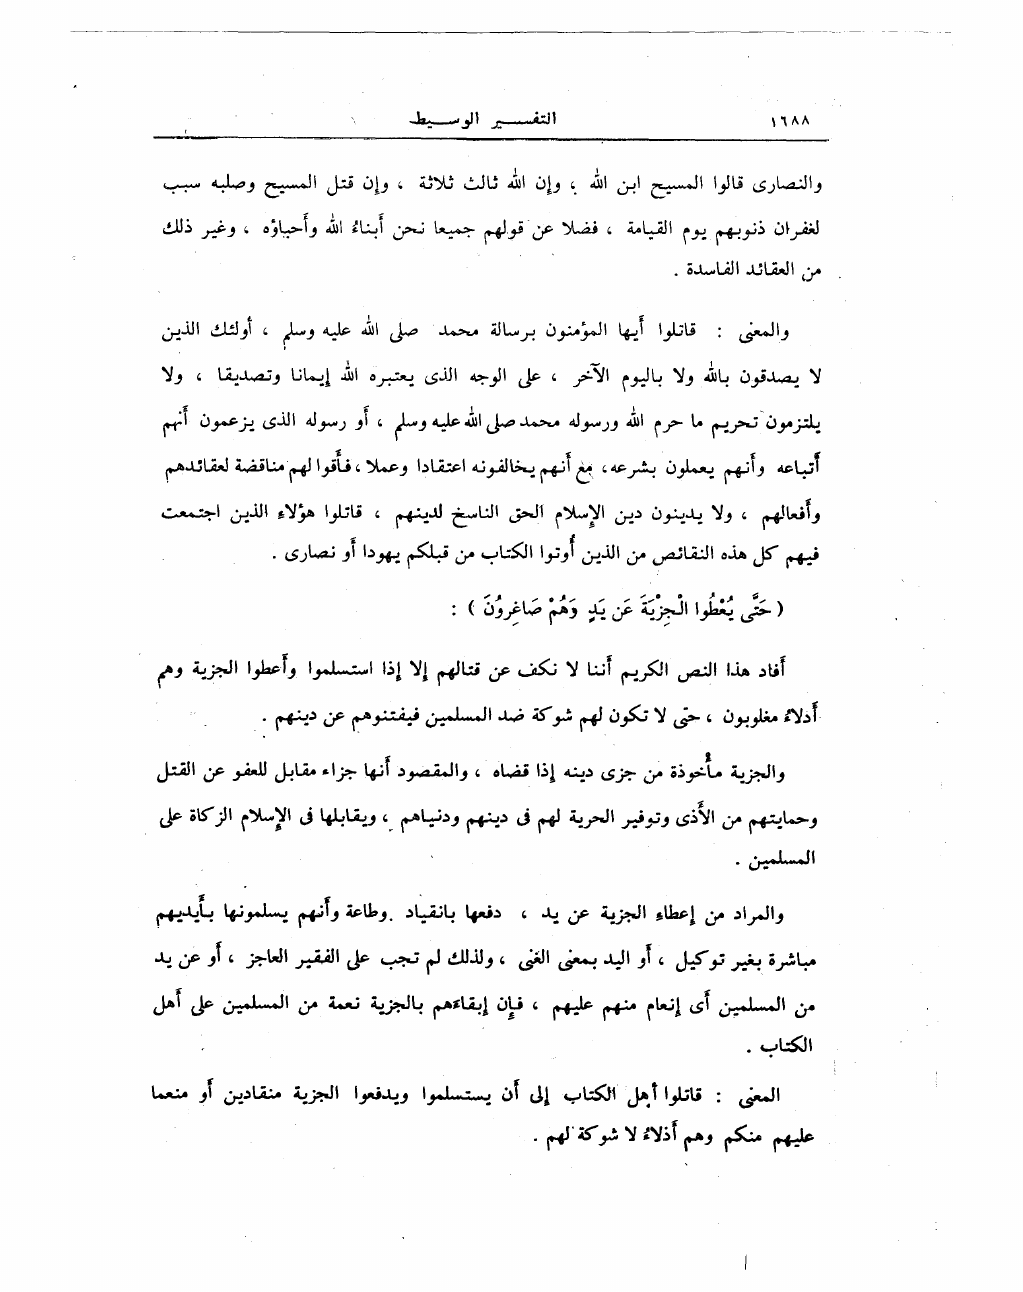 ١٦٨٨ التفسير الوسيط
والنصارى قالوا المسيح ابن الله ، وإن الله ثالث ثلاثة ، وإن قتل المسيح وصلبه سبب
لغفران ذنوبهم يوم القيامة ، فضلا عن قولهم جميعا نحن أبناءُ الله وأحباؤه ، وغير ذلك
من العقائد الفاسدة .
والمعنى : قاتلوا أيها المؤمنون برسالة محمد صلى الله عليه وسلم ، أولئك الذين
لا يصدقون بالله ولا باليوم الآخر ، على الوجه الذى يعتبره الله إيمانا وتصديقا ، ولا
يلتزمون تحريم ما حرم الله ورسوله محمد صلى الله عليه وسلم ، أو رسوله الذى يزعمون أنهم
أتباعه وأنهم يعملون بشرعه، مع أنهم يخالفونه اعتقادا وعملا ، فأقوا لهم مناقضة لعقائدهم
وأفعالهم ، ولا يدينون دين الإسلام الحق الناسخ لدينهم ، قاتلوا هؤلاءِ الذين اجتمعت
فيهم كل هذه النقائص من الذين أُوتوا الكتاب من قبلكم يهودا أو نصارى .
( حَتَّى يُعْطُوا الْجِزْيَةَ عَن يَدٍ وَهُمْ صَاغِرُونَ ) :
أفاد هذا النص الكريم أننا لا نكف عن قتالهم إلا إذا استسلموا وأعطوا الجزية وهم
أذلاءُ مغلوبون ، حتى لا تكون لهم شوكة ضد المسلمين فيفتنوهم عن دينهم .
والجزية مأْخوذة من جزى دينه إذا قضاه ، والمقصود أنها جزاء مقابل للعفو عن القتل
وحمايتهم من الأذى وتوفير الحرية لهم فى دينهم ودنياهم ، ويقابلها فى الإسلام الزكاة على
المسلمين .
والمراد من إعطاءِ الجزية عن يد ، دفعها بانقياد وطاعة وأنهم يسلمونها بأيديهم
مباشرة بغير توكيل ، أو اليد بمعنى الغنى ، ولذلك لم تجب على الفقير العاجز ، أو عن يد
من المسلمين أى إنعام منهم عليهم ، فإن إبقاءهم بالجزية نعمة من المسلمين على أهل
الكتاب .
المعنى : قاتلوا أهل الكتاب إلى أن يستسلموا ويدفعوا الجزية منقادين أو منعما
عليهم منكم وهم أذلاءُ لا شوكة لهم .